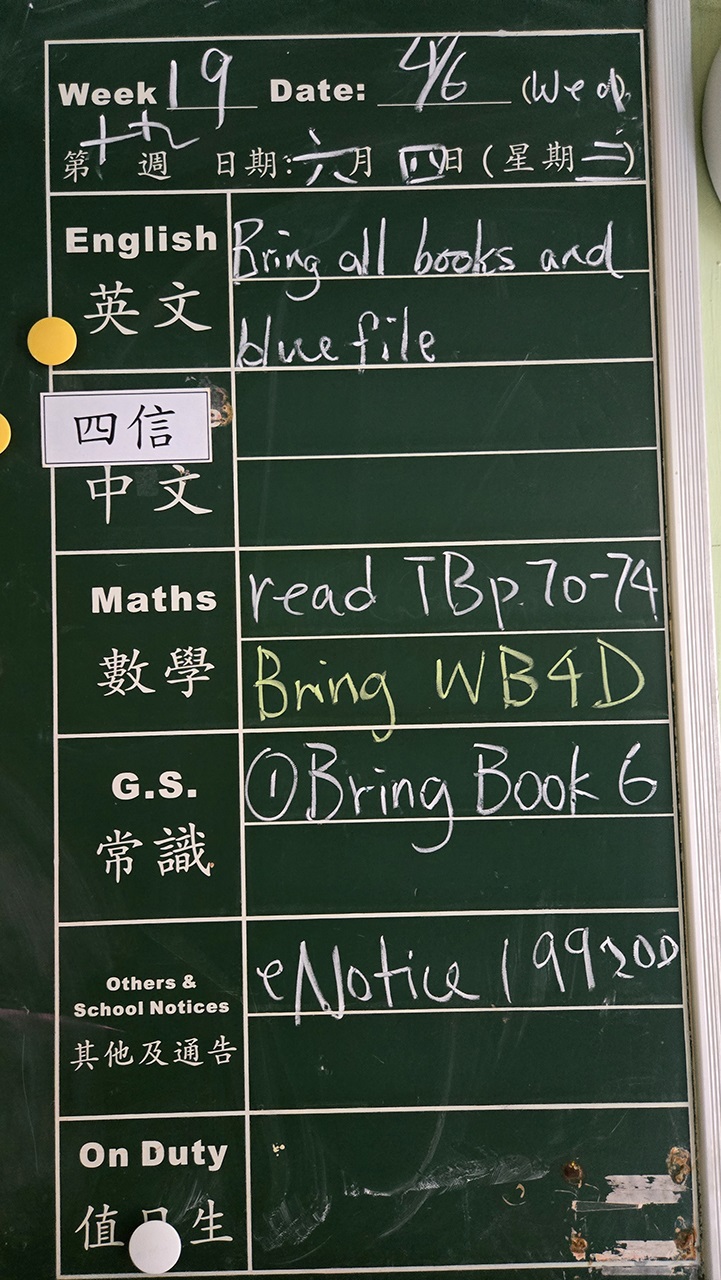 Week 19 Date: 4/6 (Wed)
第十九週 日期:六月四日(星期三)
English Bring all books and
英文 blue file
四信
中文
Maths read TB p.70-74
數學 Bring WB4D
G.S. ①Bring Book 6
常識
Others &
School Notices eNotice 199 200
其他及通告
On Duty
值日生